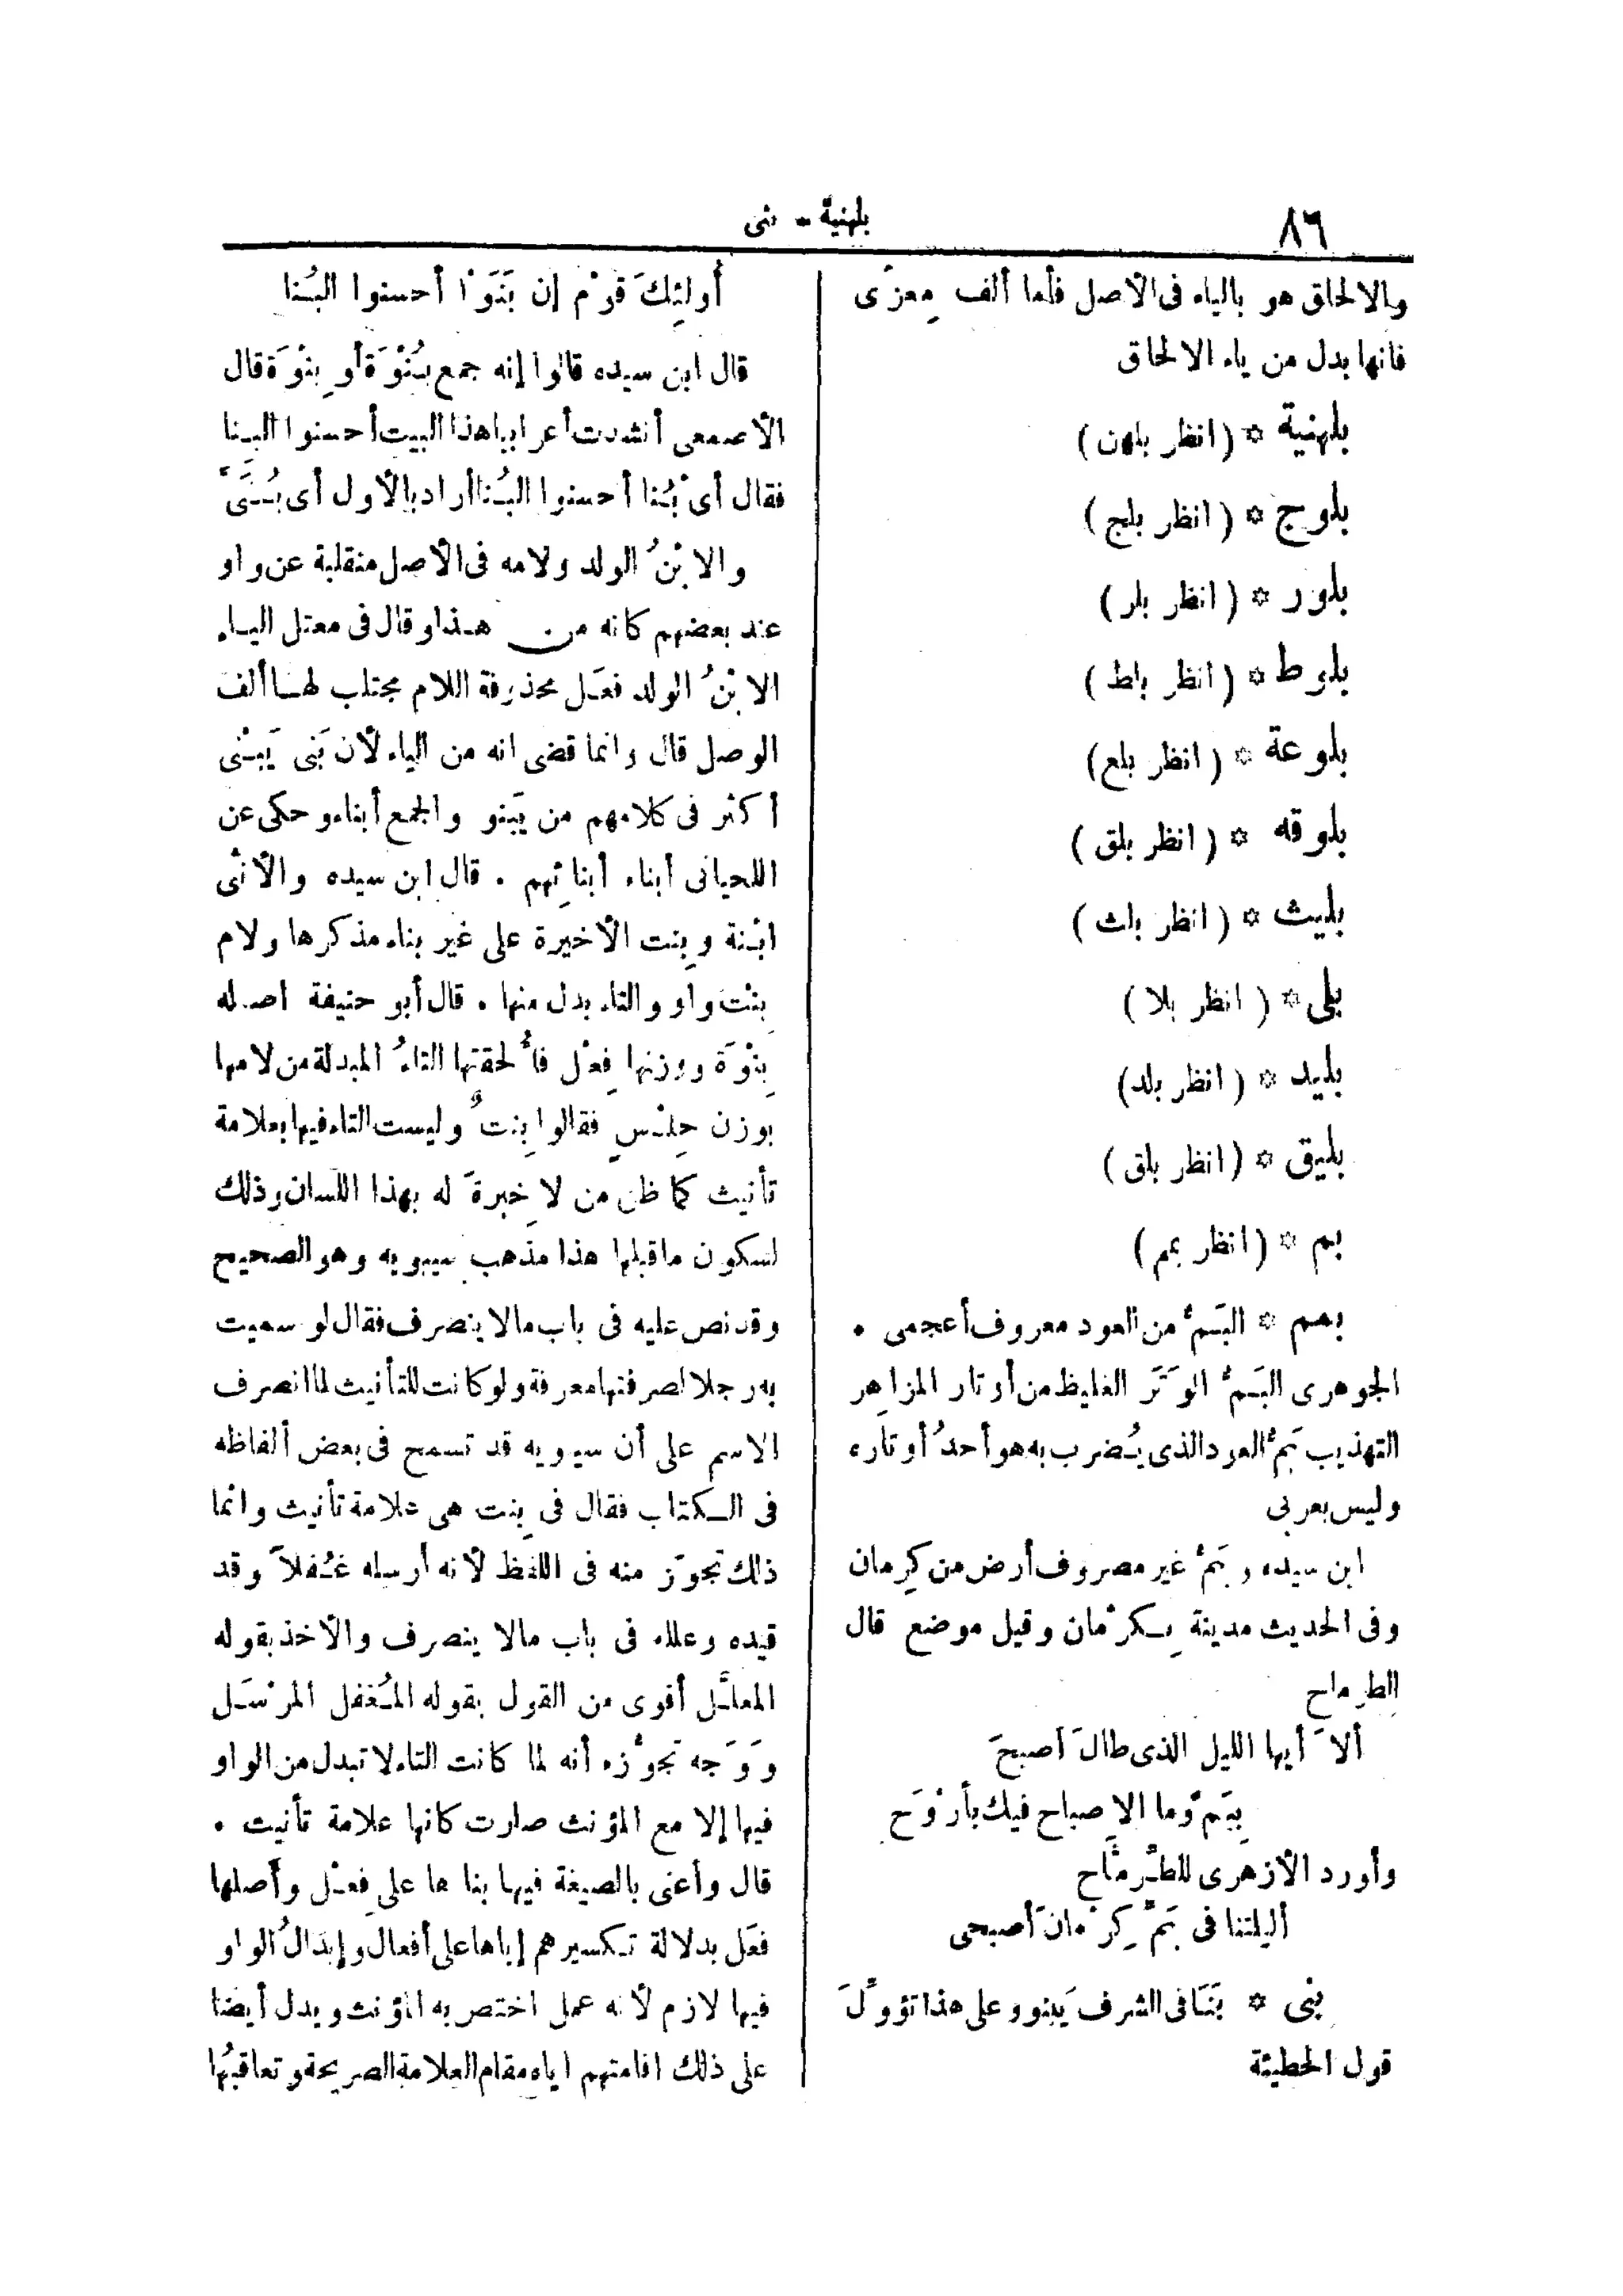 ٨٦
بلهنية - بنى
والالحاق هو بالياء فى الأصل فأما ألف مِعزًى
فانها بدل من ياء الالحاق
بلهنية * (انظر بلهن)
بلوج * (انظر بلج)
بلور * (انظر بلر)
بلوط * (انظر بلط)
بلوعة * (انظر بلع)
بلوقه * (انظر بلق)
بليث * (انظر بلث)
بلى * (انظر بلا)
بليد * (انظر بلد)
بليق * (انظر بلق)
بم * (انظر بمم)
بمم * البَمُّ من العود معروف أعجمى .
الجوهرى البَمُّ الوَتَر الغليظ من أوتار المزاهر
التهذيب بَمُّ العود الذى يُضرب به هو أحدُ أوتاره
وليس بعربى
ابن سيده وبَمُّ غير مصروف أرض من كِرمان
وفى الحديث مدينة بِكرْمان وقيل موضع قال
الطِرماح
ألاَ أيها الليل الذى طالَ أصبحَ
بِبَمَّ وما الاصباح فيك بأرْوَح
وأورد الأزهرى للطِّرِمَّاح
أليلتنا فى بَمِّ كِرْمانَ أصبحى
بنى * بَنَا فى الشرف يَبنو وعلى هذا تؤوِّلَ
قول الحطيئة
أولئِكَ قوْم إن بَنَوْا أحسنوا البُنا
قال ابن سيده قالوا إنه جمع بُنْوَة أو بِنْوَة قال
الأصمعى أنشدت أعرابيا هذا البيت أحسنوا البِنا
فقال أى بُنا أحسنوا البُنا أراد بالأول أى بُنَىَّ
والابْنُ الولد ولامه فى الأصل منقلبة عن واو
عند بعضهم كانه من هذا وقال فى معتل الياء
الابْنُ الولد فعَل محذوفة اللام مجتلب لها ألف
الوصل قال وانما قضى انه من الياء لأن بَنى يَبْنى
أكثر فى كلامهم من يَبنو والجمع أبناء وحكى عن
اللحيانى أبناء أبنائِهم . قال ابن سيده والأنثى
ابْنة وبِنت الأخيرة على غير بناء مذكرها ولام
بِنْت واو والتاء بدل منها . قال أبو حنيفة اصله
بِنْوَة ووزنها فِعْل فأُلحقتها التاءُ المبدلة من لامها
بوزن حِلْسٍ فقالوا بِنتٌ وليست التاء فيها بعلامة
تأنيث كما ظن من لا خِبرةَ له بهذا اللسان وذلك
لسكون ما قبلها هذا مذهب سيبويه وهو الصحيح
وقد نص عليه فى باب مالا ينصرف فقال لو سميت
به رجلا لصرفتها معرفة ولو كانت للتأنيث لما انصرف
الاسم على أن سيبويه قد تسمح فى بعض ألفاظه
فى الكتاب فقال فى بِنت هى علامة تأنيث وانما
ذلك تجوّز منه فى اللفظ لأنه أرسله غُفلاً وقد
قيده وعلله فى باب مالا ينصرف والأخذ بقوله
المعلَّل أقوى من القول بقوله المُغفل المرْسَل
ووَجه تجوّزه أنه لما كانت التاء لا تبدل من الواو
فيها إلا مع المؤنث صارت كانها علامة تأنيث .
قال وأعنى بالصيغة فيها بناءها على فِعْل وأصلها
فعَل بدلالة تكسيرهم إياها على أفعال وإبدالُ الواو
فيها لازم لأنه عمل اختص به المؤنث ويدل أيضا
على ذلك اقامتهم اياه مقام العلامة الصريحة وتعاقبُها